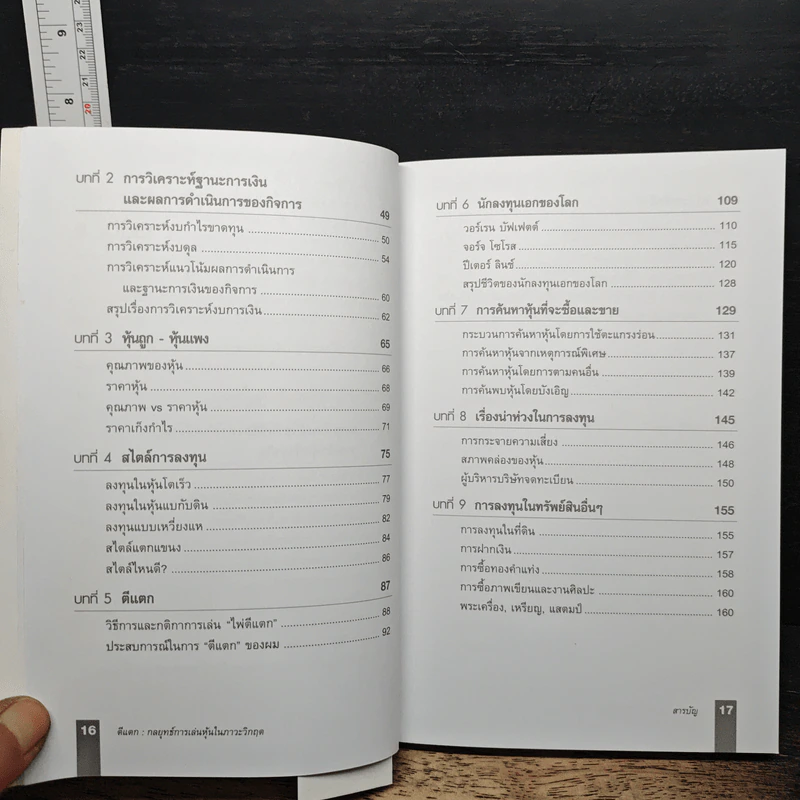 9
23
22
21
8
20
บทที่ 2 การวิเคราะห์ฐานะการเงิน
และผลการดำเนินการของกิจการ 49
การวิเคราะห์งบกำไรขาดทุน 50
การวิเคราะห์งบดุล 54
การวิเคราะห์แนวโน้มผลการดำเนินการ
และฐานะการเงินของกิจการ 60
สรุปเรื่องการวิเคราะห์งบการเงิน 62
บทที่ 3 หุ้นถูก - หุ้นแพง 65
คุณภาพของหุ้น 66
ราคาหุ้น 68
คุณภาพ vs ราคาหุ้น 69
ราคาเก็งกำไร 71
บทที่ 4 สไตล์การลงทุน 75
ลงทุนในหุ้นโตเร็ว 77
ลงทุนในหุ้นแบกับดิน 79
ลงทุนแบบเหวี่ยงแห 82
สไตล์แตกแขนง 84
สไตล์ไหนดี? 86
บทที่ 5 ตีแตก 87
วิธีการและกติกาการเล่น "ไพ่ตีแตก" 88
ประสบการณ์ในการ "ตีแตก" ของผม 92
16 ตีแตก : กลยุทธ์การเล่นหุ้นในภาวะวิกฤต
บทที่ 6 นักลงทุนเอกของโลก 109
วอร์เรน บัฟเฟตต์ 110
จอร์จ โซโรส 115
ปีเตอร์ ลินช์ 120
สรุปชีวิตของนักลงทุนเอกของโลก 128
บทที่ 7 การค้นหาหุ้นที่จะซื้อและขาย 129
กระบวนการค้นหาหุ้นโดยการใช้ตะแกรงร่อน 131
การค้นหาหุ้นจากเหตุการณ์พิเศษ 137
การค้นหาหุ้นโดยการตามคนอื่น 139
การค้นพบหุ้นโดยบังเอิญ 142
บทที่ 8 เรื่องน่าห่วงในการลงทุน 145
การกระจายความเสี่ยง 146
สภาพคล่องของหุ้น 148
ผู้บริหารบริษัทจดทะเบียน 150
บทที่ 9 การลงทุนในทรัพย์สินอื่นๆ 155
การลงทุนในที่ดิน 155
การฝากเงิน 157
การซื้อทองคำแท่ง 158
การซื้อภาพเขียนและงานศิลปะ 160
พระเครื่อง, เหรียญ, แสตมป์ 160
สารบัญ 17